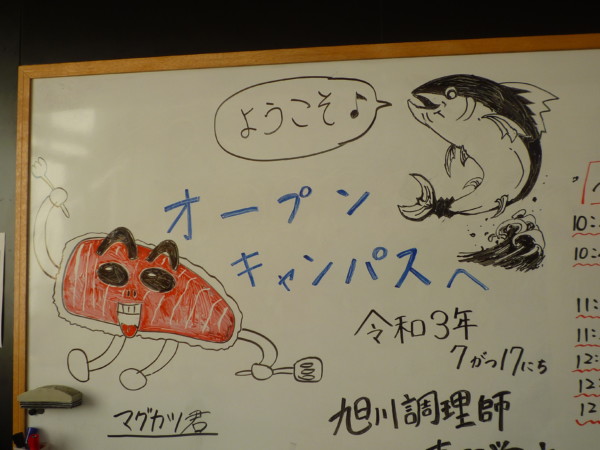 ようこそ♪
オープン
キャンパスへ
令和3年
7がつ17にち
旭川調理師
マグカツ君
10:
10:
11:
11:
12:
12:
12